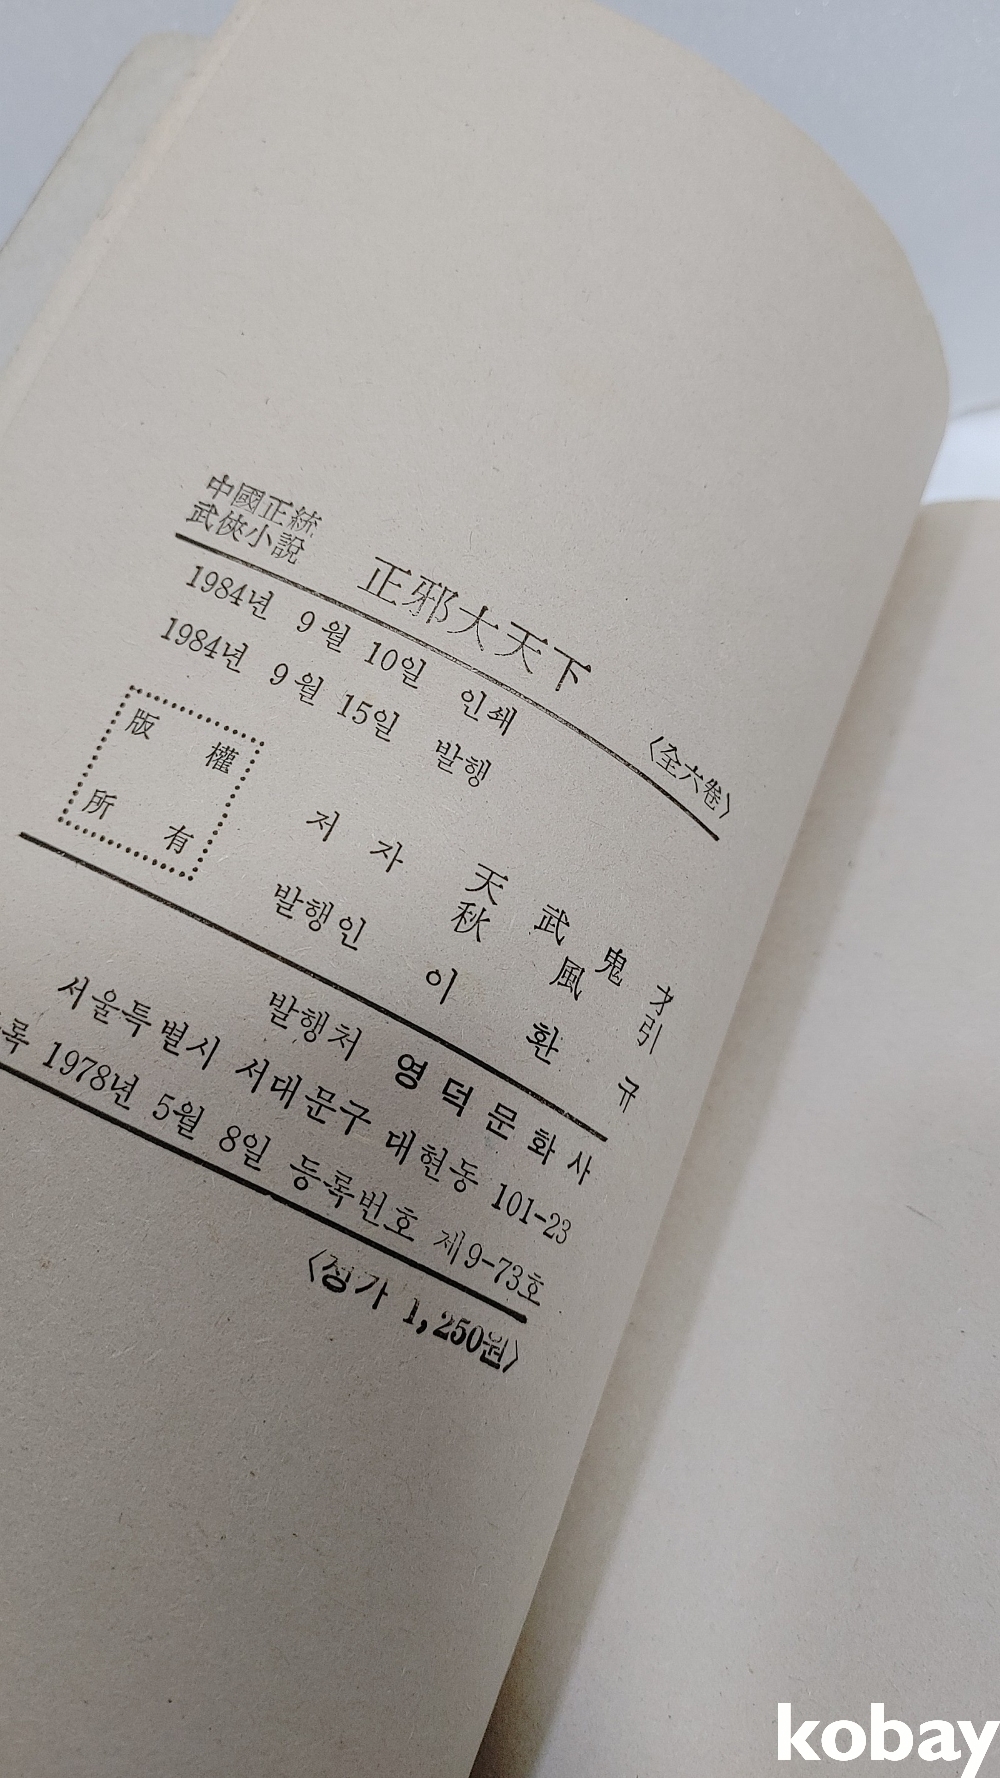 中國正統
武俠小說
正邪大天下
〈全六卷〉
1984년 9월 10일 인쇄
1984년 9월 15일 발행
版權
所有
저자 天武鬼才
秋風引
발행인 이환규
발행처 영덕문화사
서울특별시 서대문구 대현동 101-23
록 1978년 5월 8일 등록번호 제9-73호
〈정가 1,250원〉
kobay